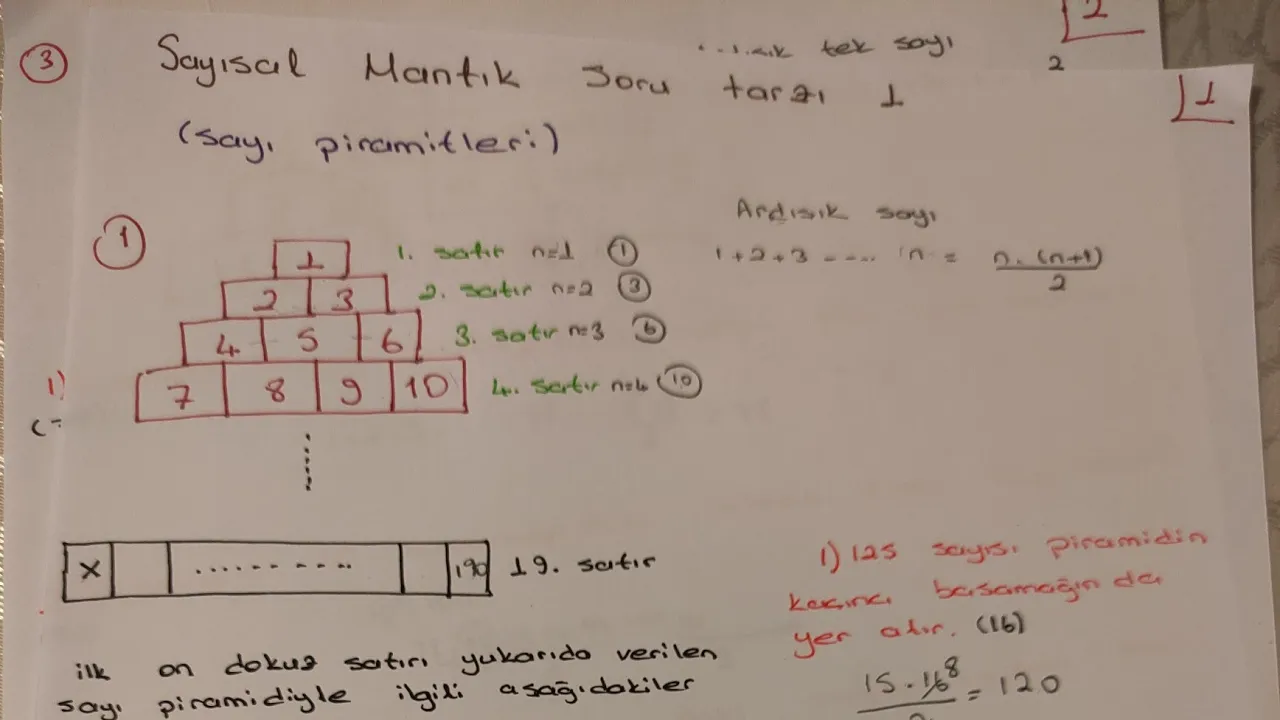 2
2
1
3
sık tek sayı
Sayısal Mantık Soru tarzı 1
(sayı piramitleri)
1
1 1. satır n=1 1
2 3 2. satır n=2 3
4 5 6 3. satır n=3 6
7 8 9 10 4. satır n=4 10
1)
Ardışık sayı
1+2+3 ---- n = n.(n+1)
2
X .......... 190 19. satır
ilk on dokuz satırı yukarıda verilen
sayı piramidiyle ilgili aşağıdakiler
1) 125 sayısı piramidin
kaçıncı basamağında
yer alır. (16)
15.16 8 = 120